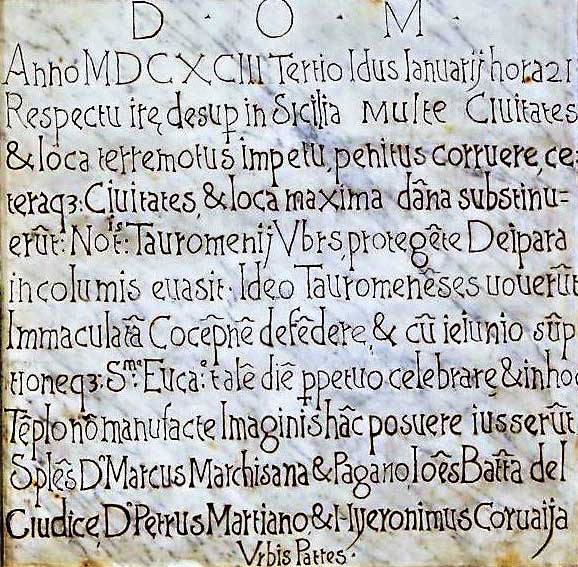 D · O · M ·
Anno MDCXCIII Tertio Idus Ianuarij hora 21
Respectu irę desup in Sicilia multe Ciuitates
& loca terremotus impetu, penitus corruere, ce=
teraqȝ: Ciuitates, & loca maxima dãna substinu=
erũt: Nois̃t: Tauromenij Vbrs, protegẽte Deipara
incolumis euasit· Ideo Tauromenẽses uouerũt
Immaculatã Cocep̃nẽ defẽdere, & cũ ieiunio sũp
tioneqȝ: S.me Euca.e: talẽ diẽ ꝑpetuo celebrare & in hoc
Tẽplo nõ manufacte Imaginis hãc posuere iusserũt
Splẽs D.r Marcus Marchisana & Pagano, Ioẽs Batt̃a del
Giudicę, D.r Petrus Martiano, & Hijeronimus Coruaija
Vrbis Patres·